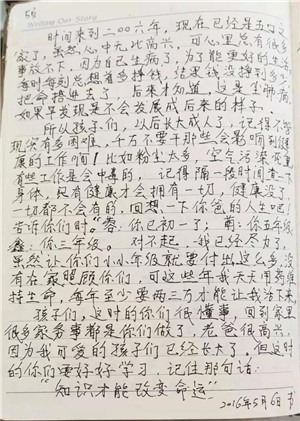 5篇
Writing Our Story
时间来到二〇〇六年，现在已经是五口之
家了，虽然心中无比高兴，可心里总有很多
事放不下，因为自己生病了，为了能更好的生活
每时每刻总想着多挣钱，结果钱没挣到多少
把命搭进去了，后来才知道，这是尘肺病，
如果早发现是不会发展成后来的样子。
所以孩子们，以后长大成人了，记得不管
现实有多困难，千万不要干那些会影响到健
康的工作啊！比如粉尘太多，空气污染严重
有些工作是会中毒的，记得隔一段时间查一下
身体，只有健康才会拥有一切，健康没了
一切都不会有的，回想一下你爸的人生吧！
告诉你们时，蓉：你已初一了；蕾：你五年级
鑫：你三年级。对不起，我已经尽力了，
虽然让你们小小年级就要付出这么多，没
有在家照顾你们，可这些年我天天用药维
持生命，每年至少要两三万才能让我活下来
孩子们，这时的你们很懂事，回到家里
很多家务事都是你们做了，老爸很高兴，
因为我可爱的孩子们已经长大了，但这时
的你们要好好学习，记住那句话：
"知识才能改变命运"
2016年5月6日 书